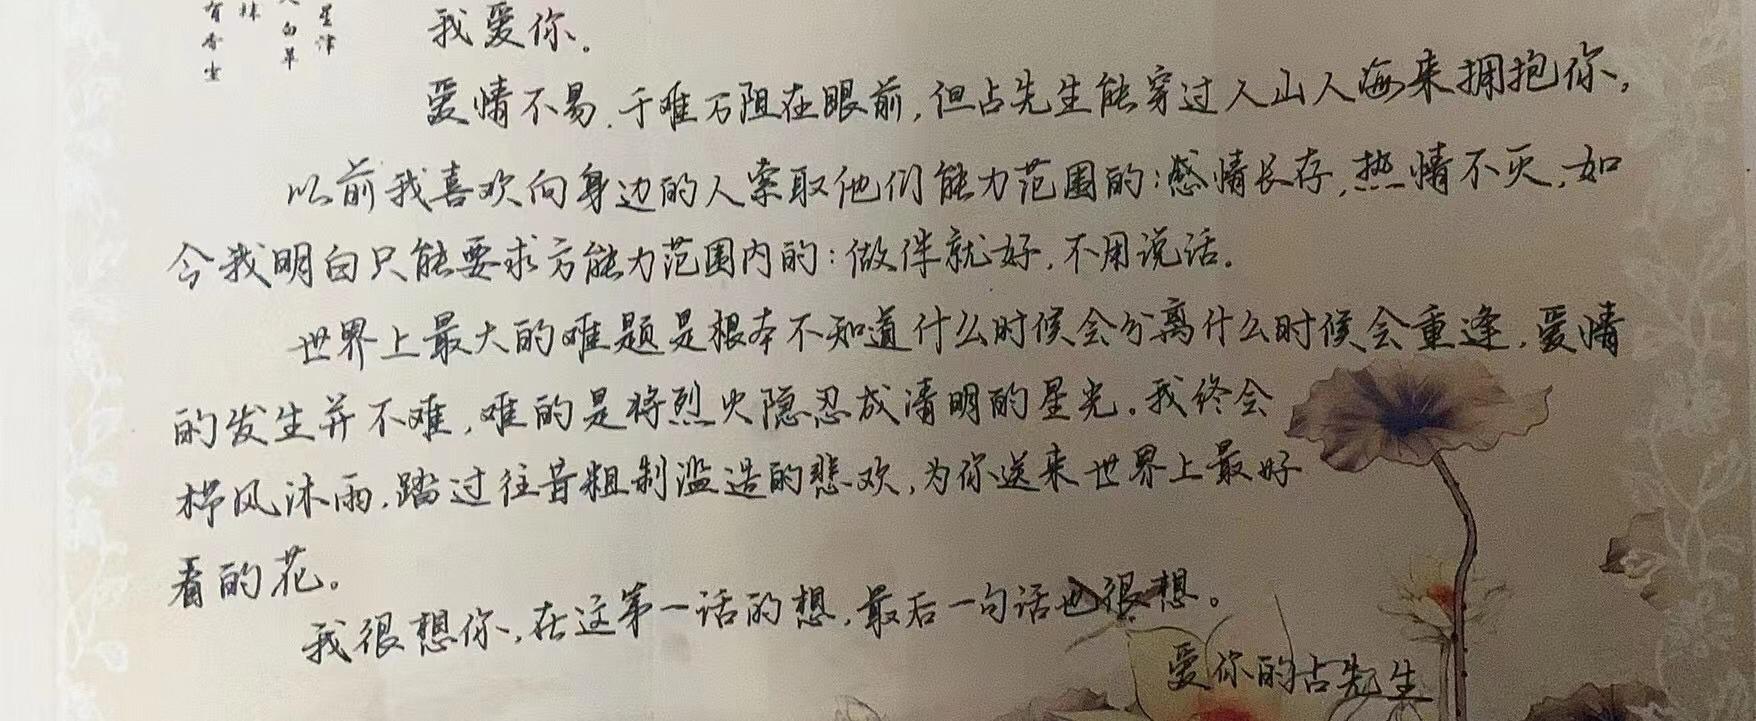 星津
白草
林
有香尘
我爱你。
爱情不易.千难万阻在眼前,但占先生能穿过人山人海来拥抱你,
以前我喜欢向身边的人索取他们能力范围的:感情长存,热情不灭,如
今我明白只能要求方能力范围内的:做伴就好,不用说话。
世界上最大的难题是根本不知道什么时候会分离什么时候会重逢,爱情
的发生并不难,难的是将烈火隐忍成清明的星光。我终会
栉风沐雨,踏过往昔粗制滥造的悲欢,为你送来世界上最好
看的花。
我很想你,在这第一话的想,最后一句话也很想。
爱你的古先生